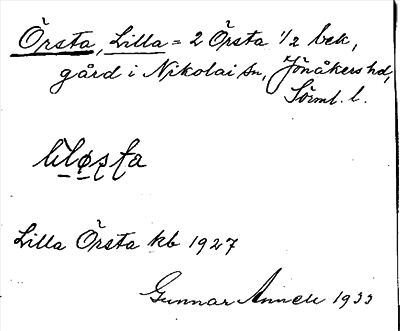 Örsta, Lilla = 2 Örsta 1/2 bek,
gård i Nikolai sn, Jönåkers hd,
Sörml. l.
Lilla Örsta kb 1927
Gunnar 1933